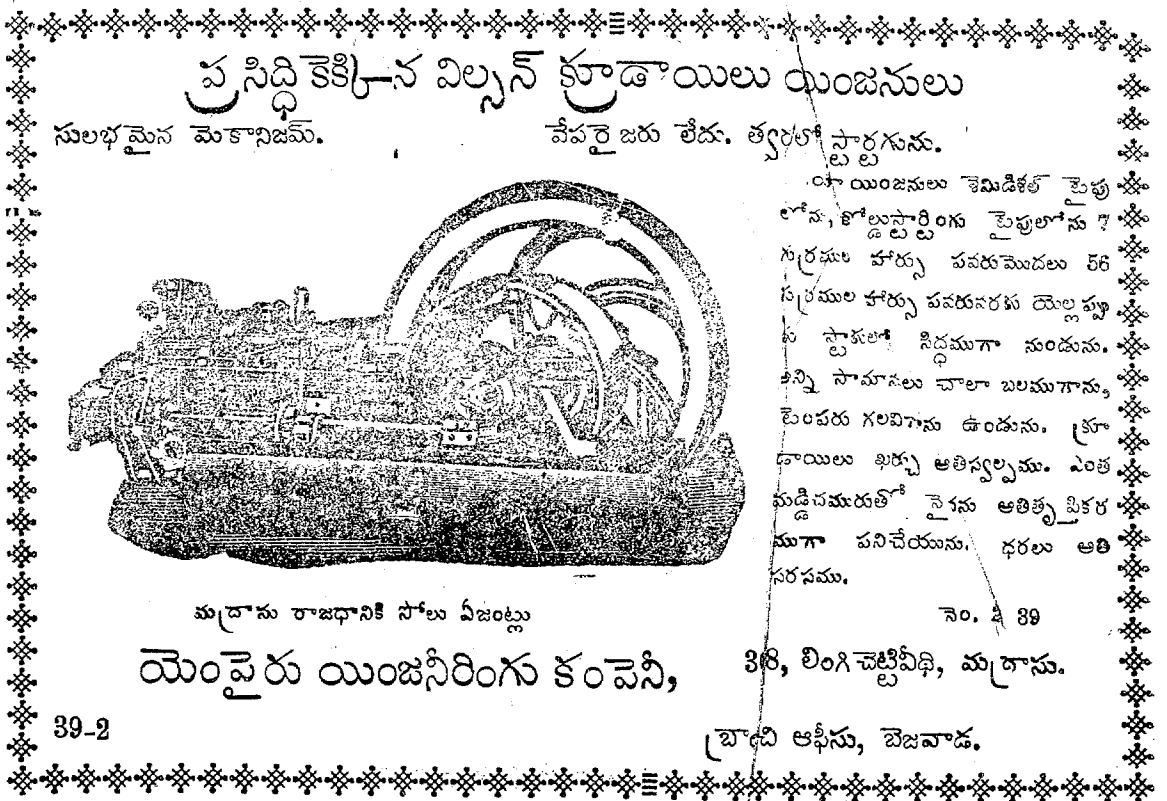 ప్రసిద్ధికెక్కిన విల్సన్ క్రూడాయిలు యింజనులు
సులభమైన మెకానిజమ్. వేపరైజరు లేదు. త్వరలో స్టార్టగును.
యీ యింజనులు శెమిడిశల్ టైపు
లోను, కోల్డుస్టార్టింగు టైపులోను 7
గుర్రముల హార్సు పవరుమొదలు 56
గుర్రముల హార్సు పవరువరకు యెల్లప్పు
డు స్టాకులో సిద్ధముగా నుండును.
అన్ని సామానలు చాలా బలముగాను,
టెంపరు గలవిగాను ఉండును. క్రూ
డాయిలు ఖర్చు అతిస్వల్పము. ఎంత
మడ్డిచమురుతో నైనను అతితృప్తికర
ముగా పనిచేయును. ధరలు అతి
సరసము.
మద్రాసు రాజధానికి సోలు ఏజంట్లు
నెం. 39
యెంపైరు యింజనీరింగు కంపెనీ, 38, లింగిచెట్టివీధి, మద్రాసు.
39-2
బ్రాంచి ఆఫీసు, బెజవాడ.